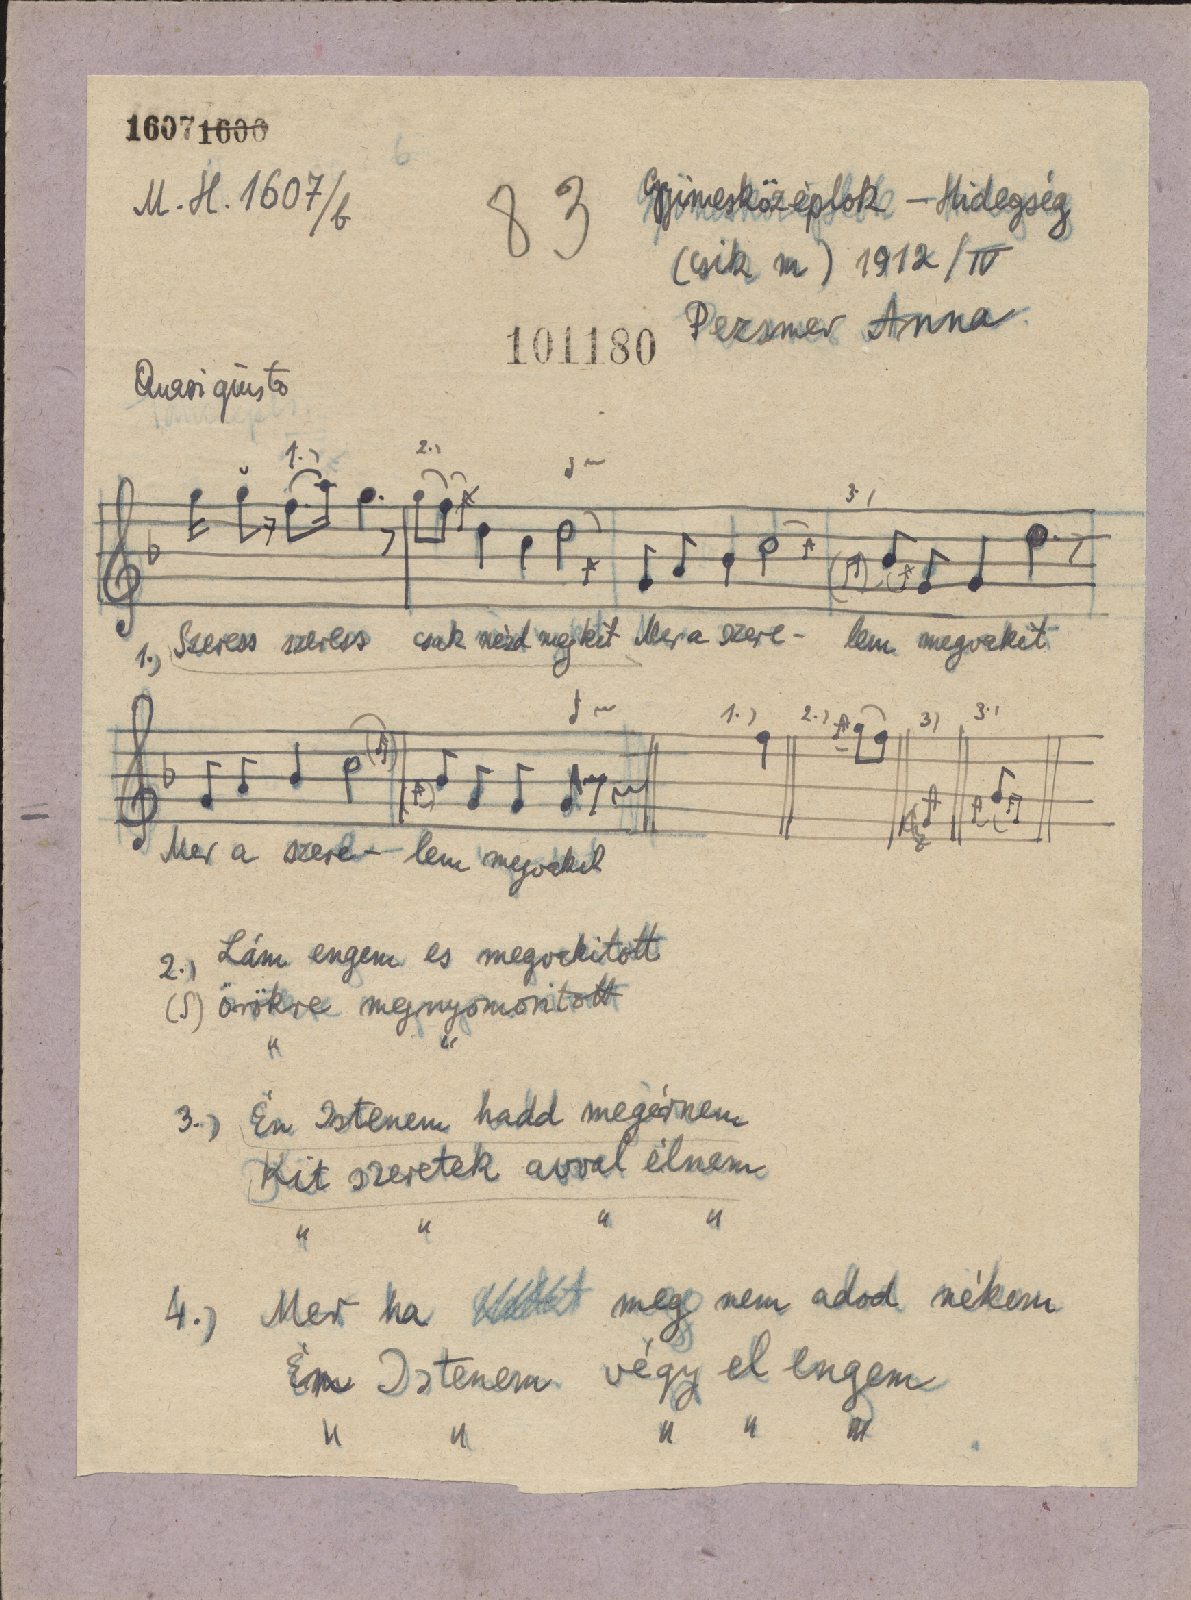 1607 1600
M.H. 1607/b
83
Gyimesközéplok – Hidegség
(Csik m) 1912/IV
Pezsmer Anna
101180
Quasi giusto
1.) 2.) 3.)
1.) Szeress szeress csak nézd meg kit Mer a szere- lem megvakit
1.) 2.) 3) 3.)
Mer a szere- lem megvakit
2.) Lám engem es megvakitott
(S) örökre megnyomoritott
" "
3.) Én Istenem hadd megérnem
Kit szeretek avval élnem
" " " "
4.) Mer ha meg nem adod nékem
Én Istenem végy el engem
" " " " "